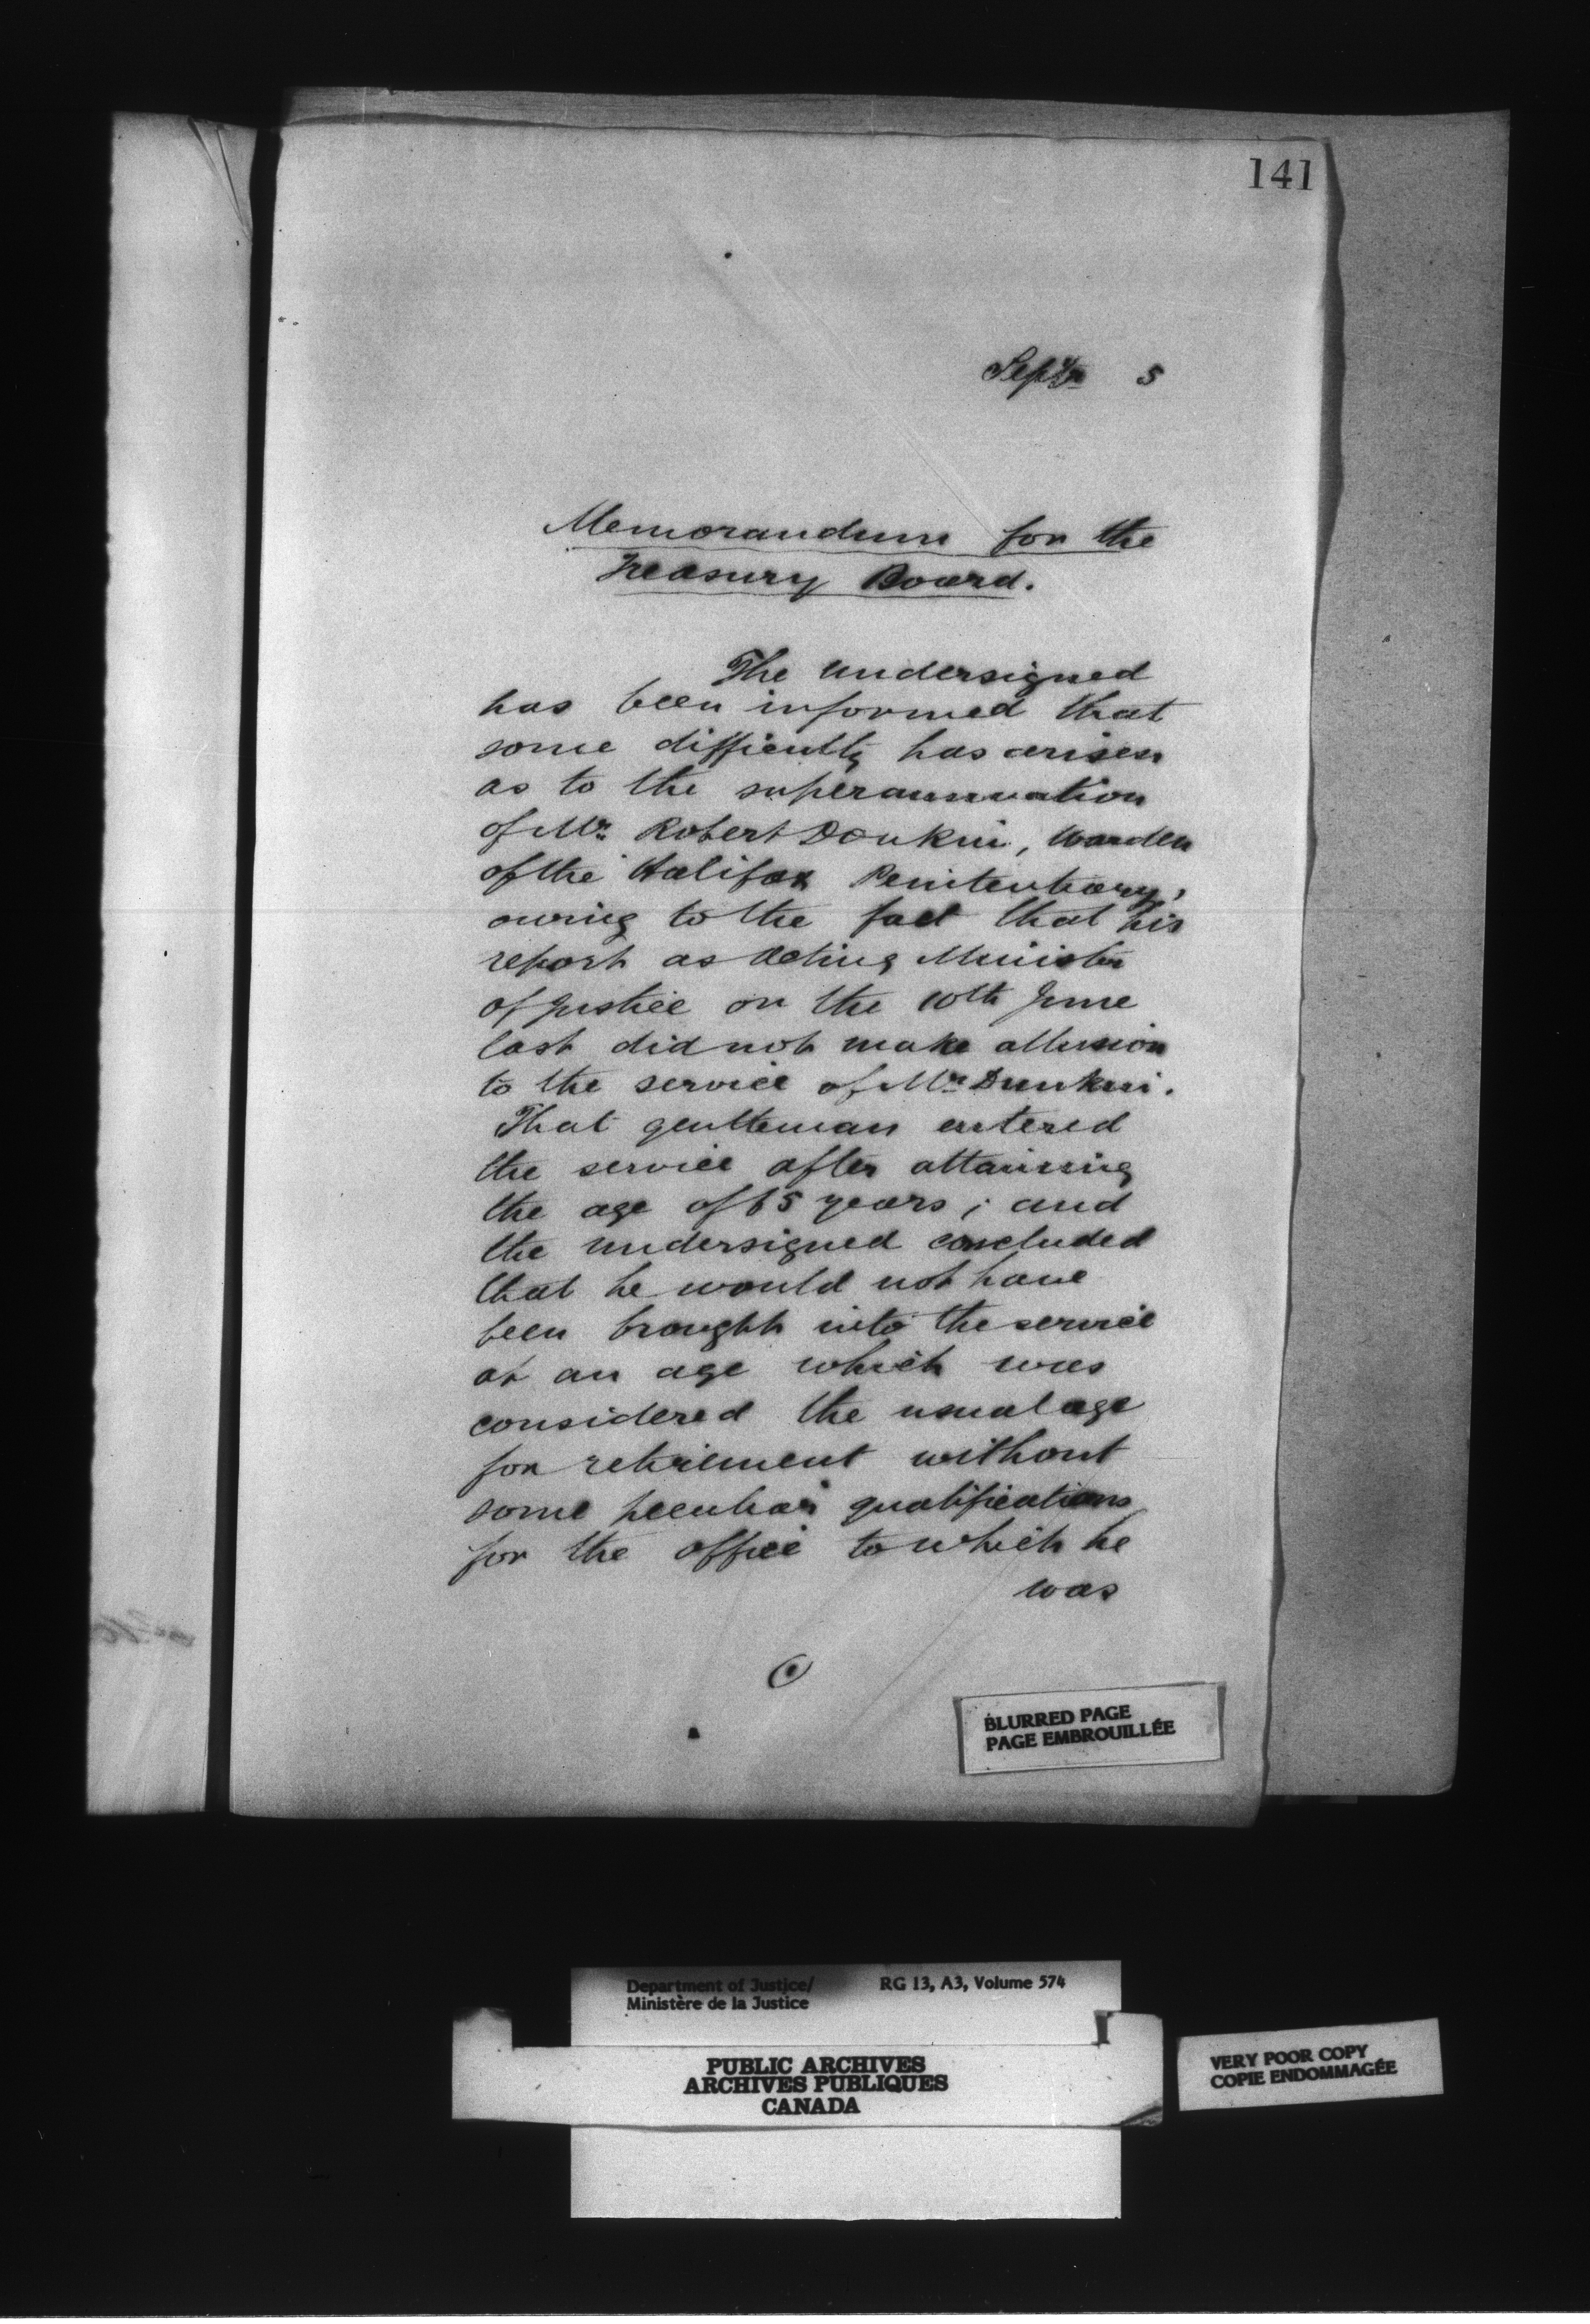 141
Septr 5
Memorandum for the
Treasury Board.
The undersigned
has been informed that
some difficulty has arisen
as to the superannuation
of Mr. Robert Donkin, Warden
of the Halifax Penitentiary,
owing to the fact that his
report as Acting Minister
of Justice on the 10th June
last did not make allusion
to the service of Mr. Dunkin.
That gentleman entered
the service after attaining
the age of 65 years; and
the undersigned concluded
that he would not have
been brought into the service
at an age which was
considered the usual age
for retirement without
some peculiar qualifications
for the office to which he
was
BLURRED PAGE
PAGE EMBROUILLÉE
Department of Justice/ RG 13, A3, Volume 574
Ministère de la Justice
PUBLIC ARCHIVES
ARCHIVES PUBLIQUES
CANADA
VERY POOR COPY
COPIE ENDOMMAGÉE